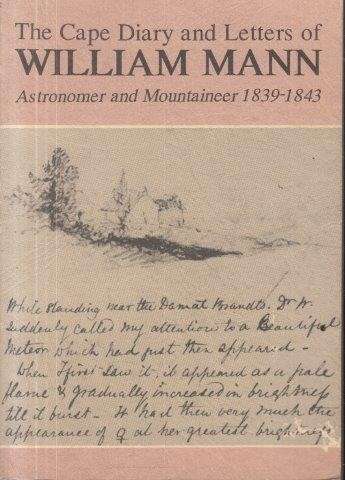 The Cape Diary and Letters of
WILLIAM MANN
Astronomer and Mountaineer 1839-1843
While standing near the Damat Brandts. Dr W.
Suddenly called my attention to a Beautiful
Meteor which had just then appeared -
When I first saw it, it appeared as a pale
flame & gradually increased in brightness
till it burst - It had then very much the
appearance of ♀ at her greatest brightness